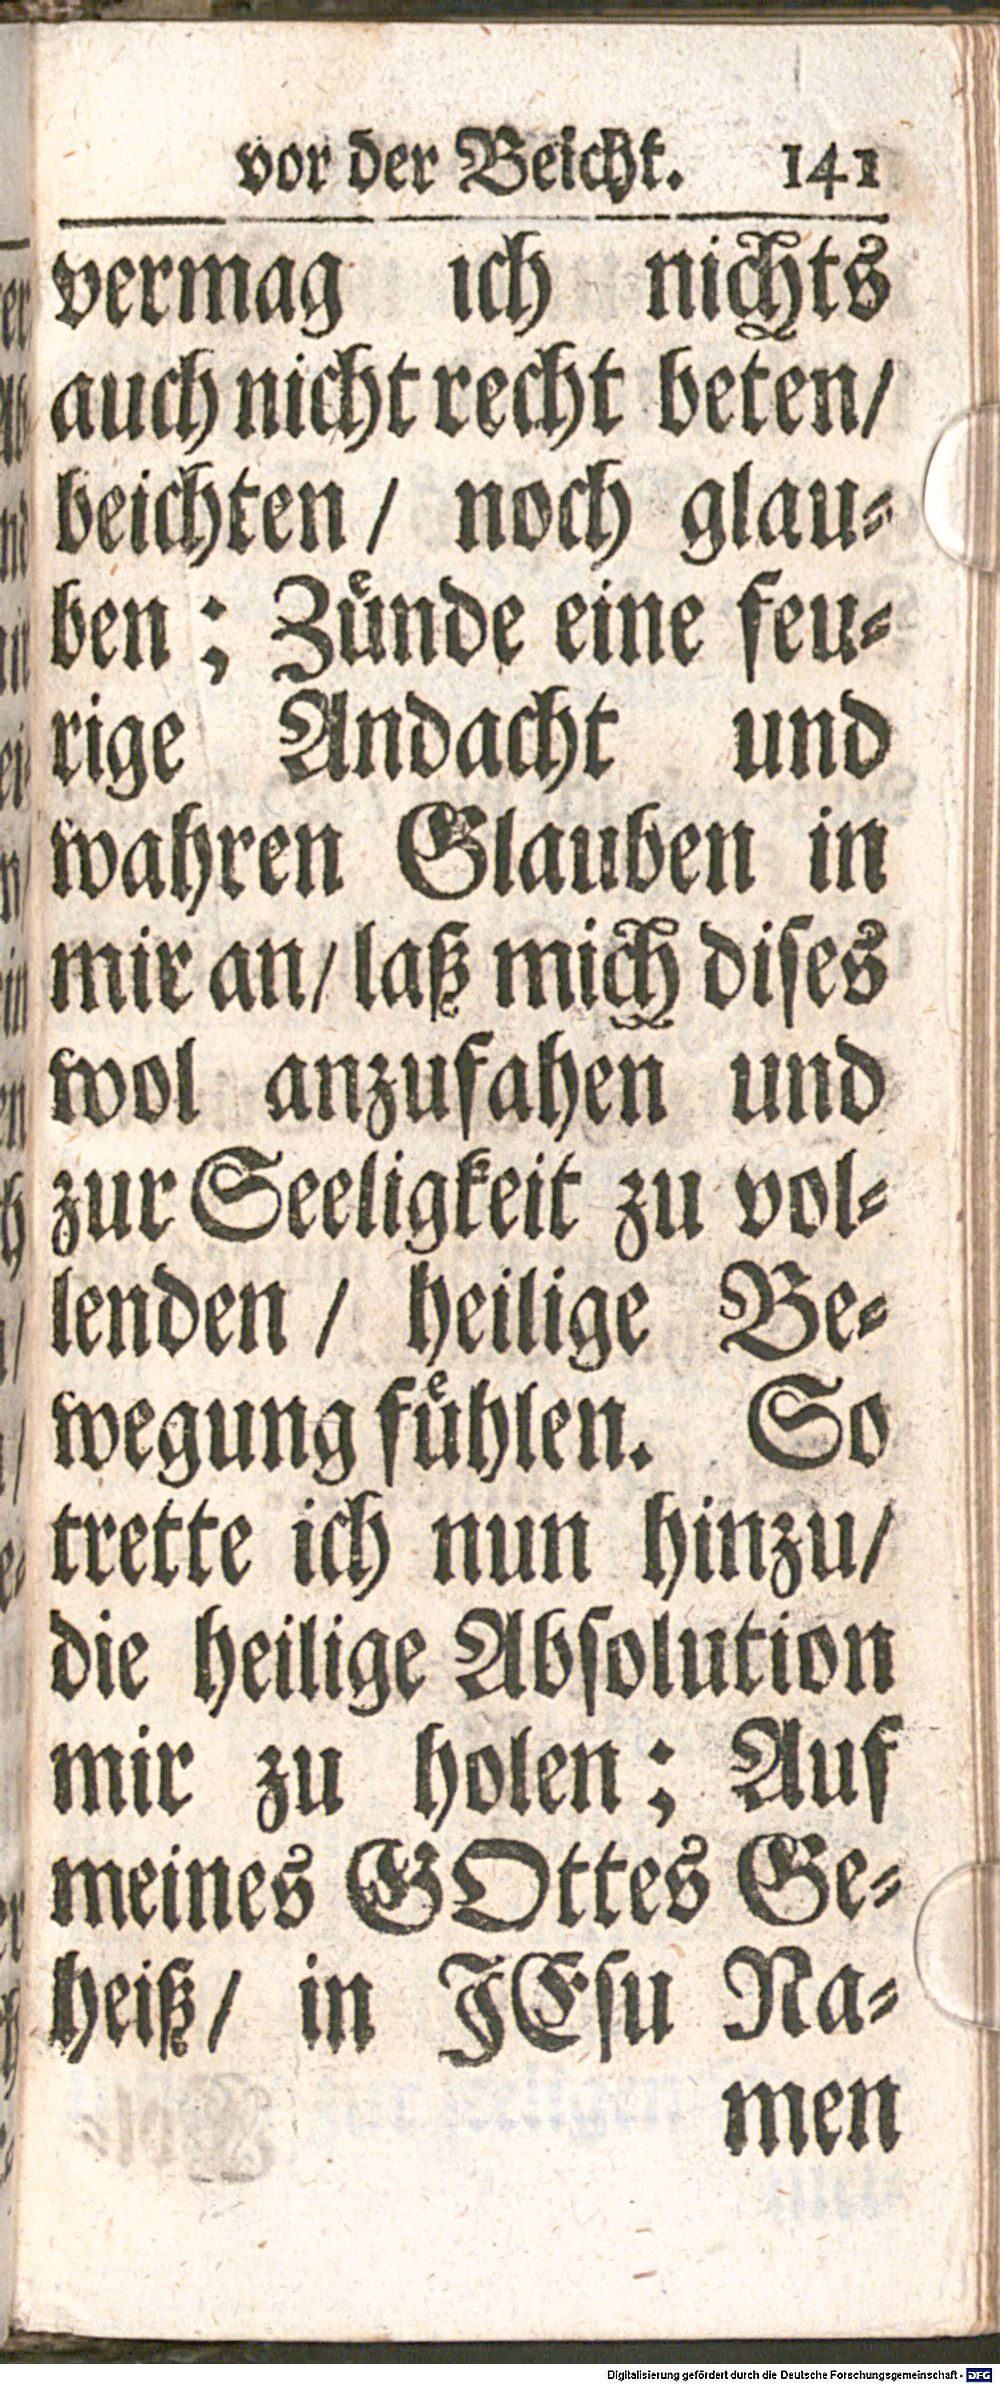 vor der Beicht. 141
vermag ich nichts
auch nicht recht beten/
beichten / noch glau⸗
ben ; Zuͤnde eine feu⸗
rige Andacht und
wahren Glauben in
mir an/ laß mich diſes
wol anzufahen und
zur Seeligkeit zu vol⸗
lenden / heilige Be⸗
wegung fuͤhlen. So
trette ich nun hinzu/
die heilige Abſolution
mir zu holen ; Auf
meines GOttes Ge⸗
heiß/ in JEſu Na⸗
men
Digitalisierung gefördert durch die Deutsche Forschungsgemeinschaft - DFG